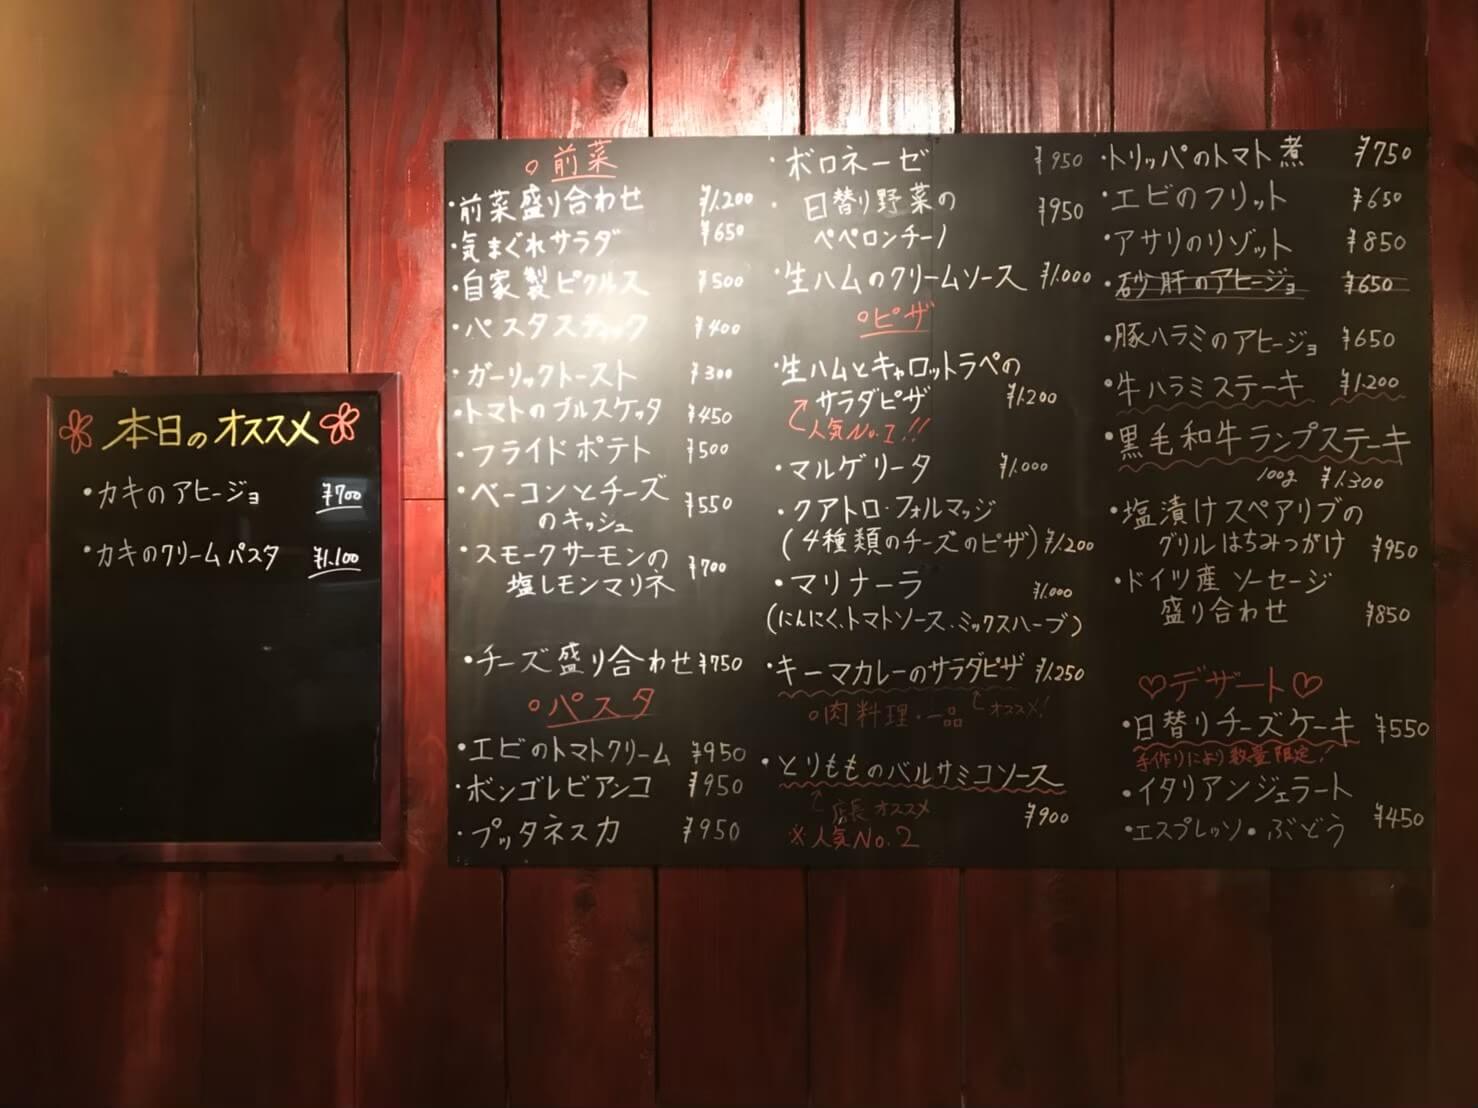 本日のオススメ
・カキのアヒージョ ¥700
・カキのクリームパスタ ¥1.100
○前菜
・前菜盛り合わせ ¥1.200
・気まぐれサラダ ¥650
・自家製ピクルス ¥500
・パスタスティック ¥400
・ガーリックトースト ¥300
・トマトのブルスケッタ ¥450
・フライドポテト ¥500
・ベーコンとチーズ
のキッシュ ¥550
・スモークサーモンの
塩レモンマリネ ¥700
・チーズ盛り合わせ ¥750
○パスタ
・エビのトマトクリーム ¥950
・ボンゴレビアンコ ¥950
・プッタネスカ ¥950
・ボロネーゼ ¥950
・日替り野菜の
ペペロンチーノ ¥950
・生ハムのクリームソース ¥1.000
○ピザ
・生ハムとキャロットラペの
サラダピザ ¥1.200
人気No.1!!
・マルゲリータ ¥1.000
・クアトロ・フォルマッジ
(4種類のチーズのピザ) ¥1.200
・マリナーラ ¥1.000
(にんにく、トマトソース、ミックスハーブ)
・キーマカレーのサラダピザ ¥1.250
オススメ!
○肉料理・一品
・とりもものバルサミコソース
店長オススメ ¥900
※人気No.2
・トリッパのトマト煮 ¥750
・エビのフリット ¥650
・アサリのリゾット ¥850
・砂肝のアヒージョ ¥650
・豚ハラミのアヒージョ ¥650
・牛ハラミステーキ ¥1.200
・黒毛和牛ランプステーキ
100g ¥1.300
・塩漬けスペアリブの
グリルはちみつがけ ¥950
・ドイツ産ソーセージ
盛り合わせ ¥850
♡デザート♡
・日替りチーズケーキ ¥550
手作りにより数量限定!
・イタリアンジェラート
・エスプレッソ・ぶどう ¥450